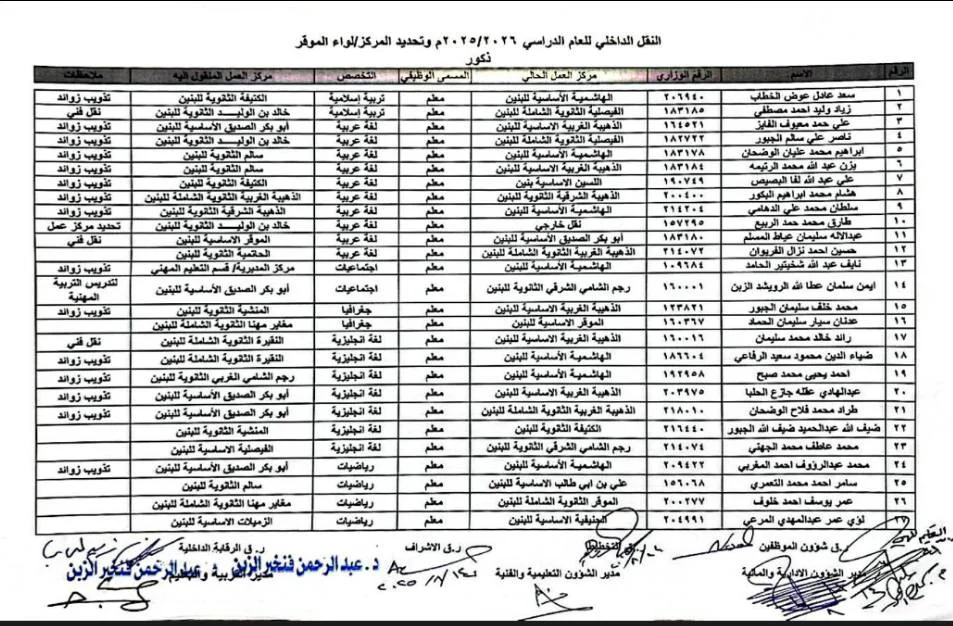 النقل الداخلي للعام الدراسي ٢٠٢٥/٢٠٢٦م وتحديد المركز/لواء الموقر
ذكور
الرقم الاسم الرقم الوزاري مركز العمل الحالي المسمى الوظيفي التخصص مركز العمل المنقول اليه ملاحظات
١ سعد عادل عوض الخطاب ٢٠٦٩٤٠ الهاشمية الأساسية للبنين معلم تربية إسلامية الكتيفة الثانوية للبنين تذويب زوائد
٢ زياد وليد احمد مصطفى ١٨٣١٨٥ الفيصلية الثانوية الشاملة للبنين معلم تربية إسلامية خالد بن الوليد الثانوية للبنين نقل فني
٣ علي حمد معيوف الفايز ١٦٤٥٢١ الذهيبة الغربية الاساسية للبنين معلم لغة عربية أبو بكر الصديق الأساسية للبنين تذويب زوائد
٤ ناصر علي سالم الجبور ١٨٢٧٢٢ الفيصلية الثانوية الشاملة للبنين معلم لغة عربية خالد بن الوليد الثانوية للبنين تذويب زوائد
٥ ابراهيم محمد عليان الوضحان ١٨٣١٧٨ الهاشمية الأساسية للبنين معلم لغة عربية سالم الثانوية للبنين تذويب زوائد
٦ يزن عبد الله محمد الرتيمه ١٨٣١٨٤ الذهيبة الغربية الاساسية للبنين معلم لغة عربية سالم الثانوية للبنين تذويب زوائد
٧ علي عبد الله لفا البصيص ١٩٠٧٤٩ اللسين الاساسية بنين معلم لغة عربية الكتيفة الثانوية للبنين تذويب زوائد
٨ هشام محمد ابراهيم البكور ٢٠٠٤٠٠ الذهيبة الشرقية الثانوية للبنين معلم لغة عربية الذهيبة الغربية الثانوية الشاملة للبنين تذويب زوائد
٩ سلطان محمد علي الدهامي ٢١٤٢٠٤ الهاشمية الأساسية للبنين معلم لغة عربية الذهيبة الشرقية الثانوية للبنين تذويب زوائد
١٠ طارق محمد حمد الربيع ١٥٧٢٩٥ نقل خارجي معلم لغة عربية خالد بن الوليد الثانوية للبنين تحديد مركز عمل
١١ عبدالاله سليمان عياط المسلم ١٨٣١٨٠ أبو بكر الصديق الأساسية للبنين معلم لغة عربية الموقر الاساسية للبنين نقل فني
١٢ حسين احمد نزال الغريوان ٢١٤٠٧٢ الذهيبة الغربية الثانوية الشاملة للبنين معلم لغة عربية الحاتمية الثانوية للبنين
١٣ نايف عبد الله شخيتير الحامد ١٠٩٦٨٤ الهاشمية الأساسية للبنين معلم اجتماعيات مركز المديرية/ قسم التعليم المهني تذويب زوائد
١٤ ايمن سلمان عطا الله الرويشد الزبن ١٦٠٠٠١ رجم الشامي الشرقي الثانوية للبنين معلم اجتماعيات أبو بكر الصديق الأساسية للبنين لتدريس التربية المهنية
١٥ محمد خلف سليمان الجبور ١٢٣٨٢١ الذهيبة الغربية الاساسية للبنين معلم جغرافيا المنشية الثانوية للبنين تذويب زوائد
١٦ عدنان سيار سليمان الحماد ١٦٠٣٦٧ الموقر الاساسية للبنين معلم جغرافيا مغاير مهنا الثانوية الشاملة للبنين
١٧ رائد خالد محمد سليمان ١٦٠٠١٦ الذهيبة الغربية الاساسية للبنين معلم لغة انجليزية النقيرة الثانوية الشاملة للبنين نقل فني
١٨ ضياء الدين محمود سعيد الرفاعي ١٨٦٦٠٤ الهاشمية الأساسية للبنين معلم لغة انجليزية النقيرة الثانوية الشاملة للبنين تذويب زوائد
١٩ احمد يحيى محمد صبح ١٩٢٩٥٨ الهاشمية الأساسية للبنين معلم لغة انجليزية رجم الشامي الغربي الثانوية للبنين تذويب زوائد
٢٠ عبدالهادي عقله جازع الحلبا ٢٠٣٩٧٥ الذهيبة الغربية الاساسية للبنين معلم لغة انجليزية أبو بكر الصديق الأساسية للبنين تذويب زوائد
٢١ طراد محمد فلاح الوضحان ٢١٨٠١٠ الذهيبة الغربية الثانوية الشاملة للبنين معلم لغة انجليزية أبو بكر الصديق الأساسية للبنين تذويب زوائد
٢٢ ضيف الله عبدالحميد ضيف الله الجبور ٢١٦٤٤٠ الكتيفة الثانوية للبنين معلم لغة انجليزية المنشية الثانوية للبنين
٢٣ محمد عاطف محمد الجهني ٢١٤٠٧٤ رجم الشامي الشرقي الثانوية للبنين معلم لغة انجليزية الفيصلية الاساسية للبنين
٢٤ محمد عبدالرؤوف احمد المغربي ٢٠٩٤٢٢ الهاشمية الأساسية للبنين معلم رياضيات أبو بكر الصديق الأساسية للبنين تذويب زوائد
٢٥ سامر احمد محمد التعمري ١٥٦٠٦٨ علي بن ابي طالب الاساسية للبنين معلم رياضيات سالم الثانوية للبنين
٢٦ عمر يوسف احمد خلوف ٢٠٠٢٧٧ الموقر الثانوية الشاملة للبنين معلم رياضيات مغاير مهنا الثانوية الشاملة للبنين
٢٧ لؤي عمر عبدالمهدي المرعي ٢٠٤٩٩١ الحنيفية الاساسية للبنين معلم رياضيات الزميلات الاساسية للبنين
ر.ق شؤون الموظفين ر.ق التخطيط ر.ق الاشراف ر.ق الرقابة الداخلية
مدير الشؤون الادارية والمالية مدير الشؤون التعليمية والفنية مدير التربية والتعليم
د. عبد الرحمن فنخير الزبن د. عبد الرحمن فنخير الزبن